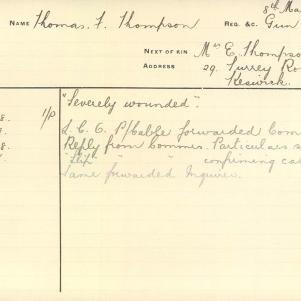 8th Ma
NAME Thomas. F. Thompson REG. &C. Gun
NEXT OF KIN Mrs E. Thompso
ADDRESS 29. Surrey Ro
Keswick.
"Severely wounded".
8. 1/P S.C.G. P/Cable forwarded Com
8 Reply from Commes. Particulars s
"Slip" " " confirming ca
Same forwarded Inquirer.